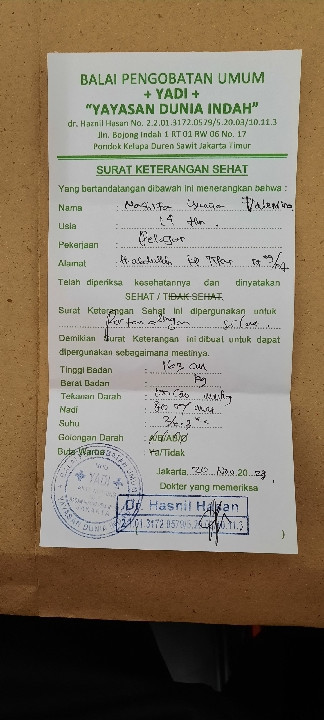 BALAI PENGOBATAN UMUM
+ YADI +
"YAYASAN DUNIA INDAH"
dr. Haznil Hasan No. 2.2.01.3172.0579/5.20.03/10.11.3
Jln. Bojong Indah 1 RT 01 RW 06 No. 17
Pondok Kelupa Duren Sawit Jakarta Timur
SURAT KETERANGAN SEHAT
Yang bertandatangan dibawah ini menerangkan bahwa :
Nama : Valentina
Usia : thn
Pekerjaan : Pelajar
Alamat :
Telah diperiksa kesehatannya dan dinyatakan
SEHAT / TIDAK SEHAT.
Surat Keterangan Sehat ini dipergunakan untuk
Pertandingan
Demikian Surat Keterangan ini dibuat untuk dapat
dipergunakan sebagaimana mestinya.
Tinggi Badan : 163 cm
Berat Badan : Kg
Tekanan Darah : mmHg
Nadi :
Suhu : 36.2 °C
Golongan Darah : A/B/AB/O
Buta Warna : Ya/Tidak
Jakarta, 20 Nov 20 23
Dokter yang memeriksa
YADI
YAYASAN DUNIA
JAKARTA
Dr. Hasnil Hasan
2.1.01.3172.0579/5.20.03/10.11.3